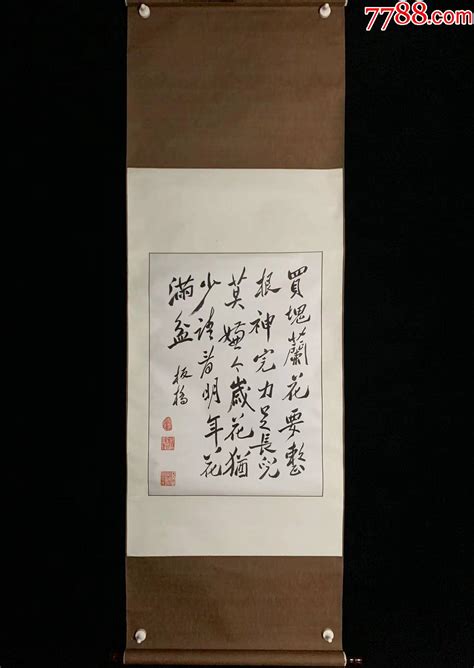 7788.com
買塊蘭花要整
根神完力足長兒
莫嫌今歲花猶
少請看明年花
滿盆 板橋